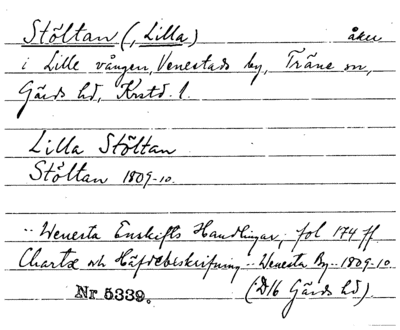 Stöltan (, Lilla) åker
i Lille vången, Venestads by, Träne sn,
Gärds hd, Krstd. l.
Lilla Stöltan
Stöltan 1809-10.
.. Wenesta Enskifts Handlingar, fol 174 ff
Chartæ och Häfdebeskrifning .. Wenesta By .. 1809-10
Nr 5339. (D16 Gärds hd.)